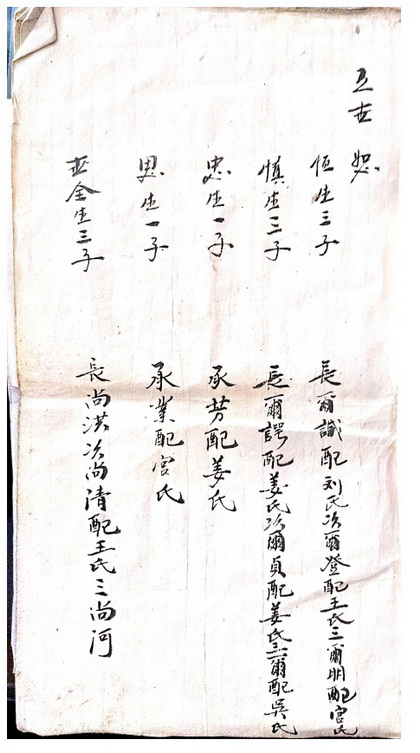 五世 恕
恒生三子 長爾識配刘氏次爾登配王氏三爾明配宮氏
慎生三子 長爾諤配姜氏次爾貞配姜氏三爾配吳氏
忠生一子 承芳配姜氏
思生一子 承業配宮氏
世金生三子 長尚洪次尚清配王氏三尚河